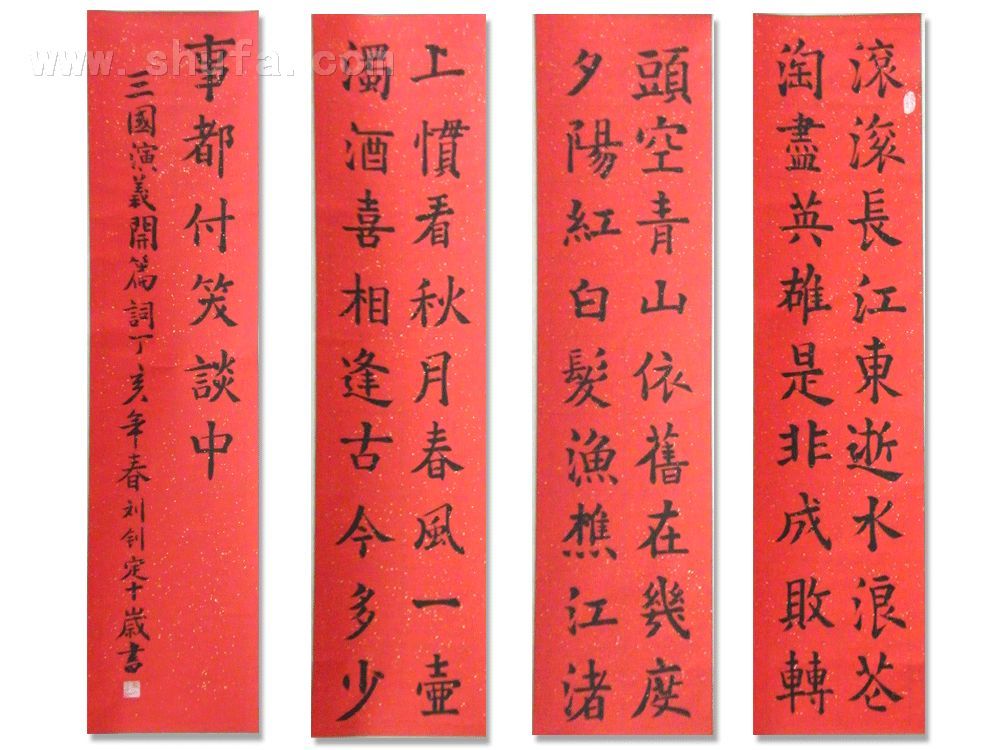 滾滚長江東逝水浪花
淘盡英雄是非成敗轉
頭空青山依舊在幾度
夕陽紅白髮漁樵江渚
上慣看秋月春風一壺
濁酒喜相逢古今多少
事都付笑談中
三國演義開篇詞丁亥年春刘钊定十歲書
www.shufa.com